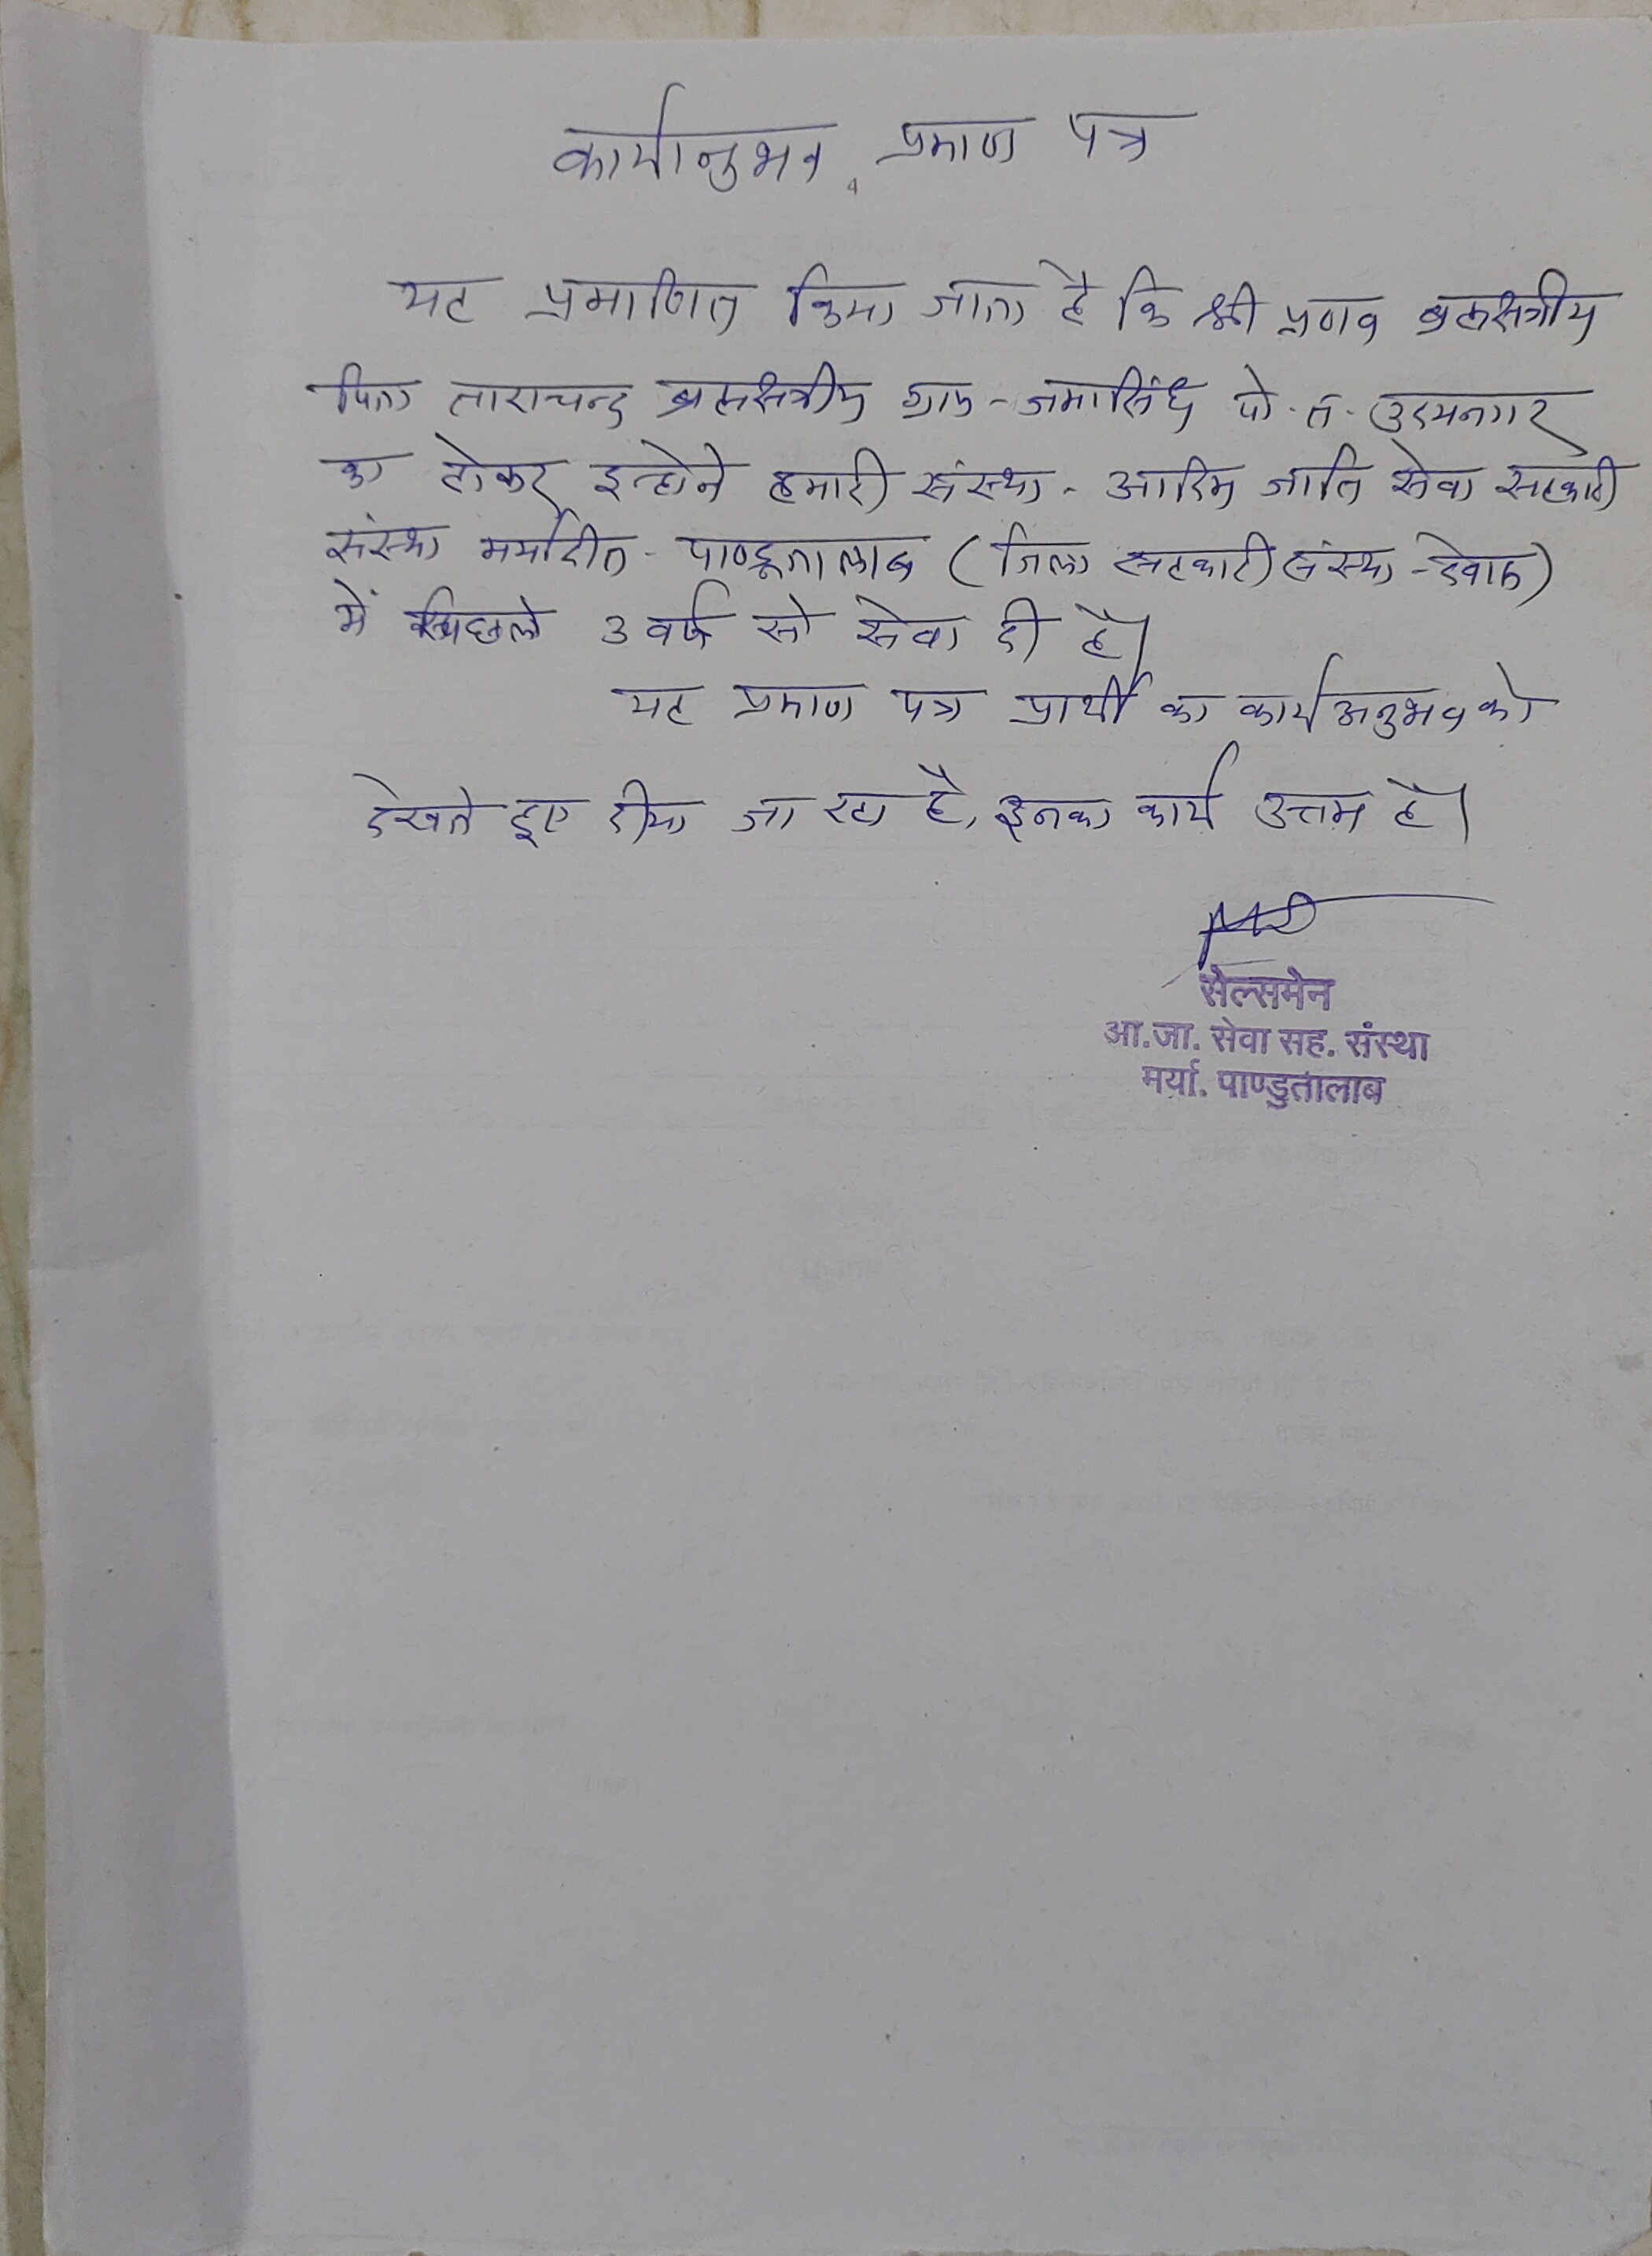 कार्यानुभव प्रमाण पत्र
यह प्रमाणित किया जाता है कि श्री प्रणव ब्रह्मक्षत्रीय
पिता ताराचन्द ब्रह्मक्षत्रीय ग्राम - जयासिंध पो. त. उदयनगर
का होकर इन्होने हमारी संस्था - आदिम जाति सेवा सहकारी
संस्था मर्यादीत - पाण्डूतालाब (जिला सहकारी संस्था - देवास)
में पिछले 3 वर्ष से सेवा दी है।
यह प्रमाण पत्र प्रार्थी का कार्य अनुभव को
देखते हुए दीया जा रहा है, इनका कार्य उत्तम है।
सेल्समेन
आ.जा. सेवा सह. संस्था
मर्या. पाण्डुतालाब